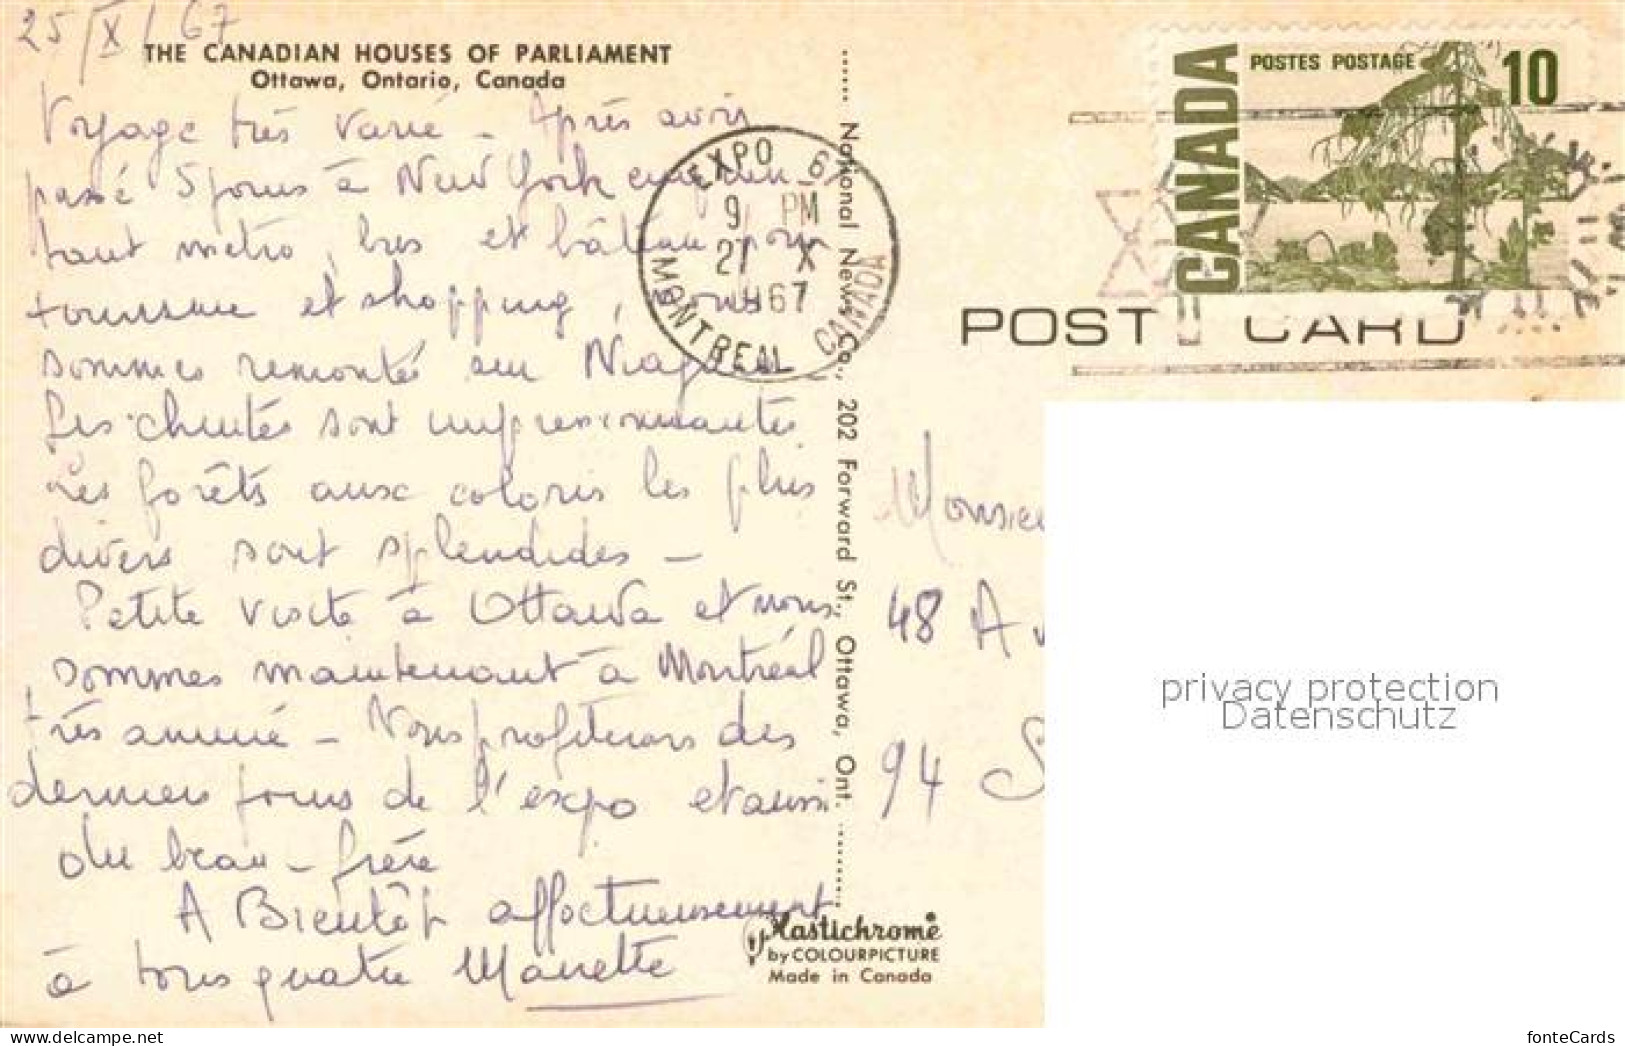 25/X/67
THE CANADIAN HOUSES OF PARLIAMENT
Ottawa, Ontario, Canada
Voyage très varié - Après avoir
passé 5 jours à New York
métro, bus et bâteau pour
tourisme et shopping, nous
sommes remonté sur Niagara
Les chutes sont impressionnantes
Les forêts aux coloris les plus
divers sont splendides -
Petite visite à Ottawa et nous
sommes maintenant à Montréal
très animé - Nous profiterons des
derniers jours de l'expo et aussi
du beau-frère
A Bientôt affectueusement
à tous quatre
National News Co., 202 Forward St., Ottawa, Ont.
EXPO 67
9 PM
27 X
1967
MONTREAL CANADA
CANADA
POSTES POSTAGE
10
POST CARD
Monsieu
48 Av
94 S
privacy protection
Datenschutz
Plastichrome
by COLOURPICTURE
Made in Canada
www.delcampe.net
fonteCards